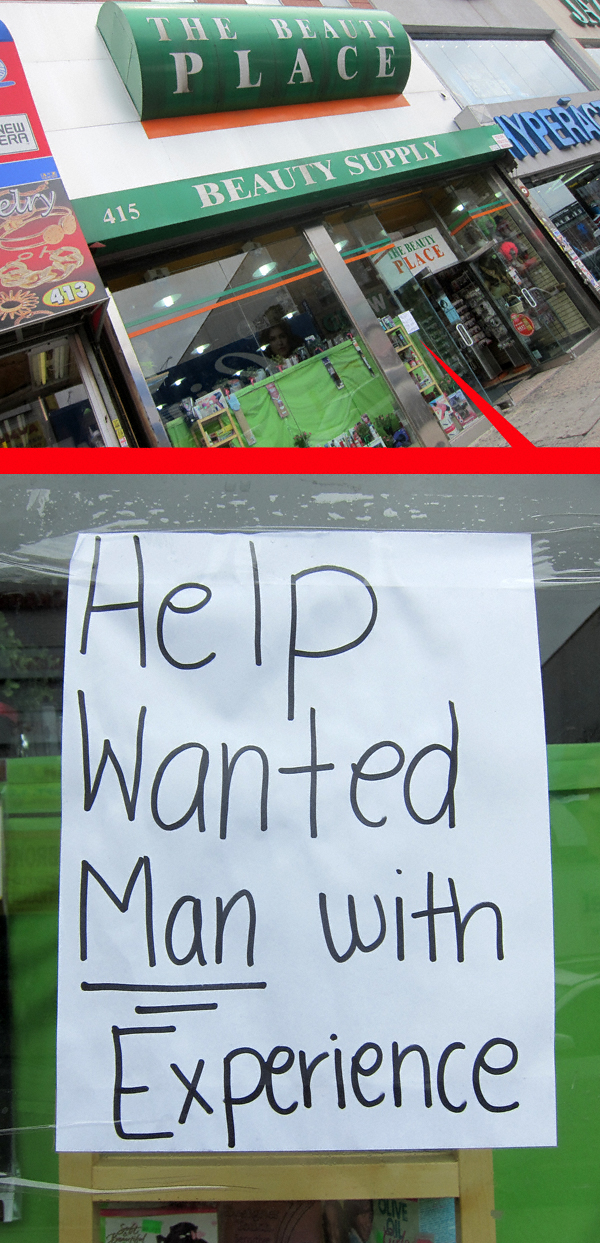 THE BEAUTY
PLACE
NEW
ERA
BEAUTY SUPPLY
415
elry
413
THE BEAUTY
PLACE
Help
Wanted
Man with
Experience
OLIVE
OIL